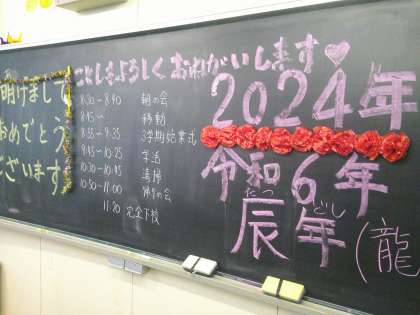 明けまして
おめでとう
ございます
ことしもよろしくおねがいします♡
8:30-8:40 朝の会
8:45~ 移動
8:55-9:35 3学期始業式
9:45-10:25 学活
10:30-10:45 清掃
10:50-11:00 帰りの会
11:20 完全下校
2024年
令和6年
たつ どし
辰年
(龍